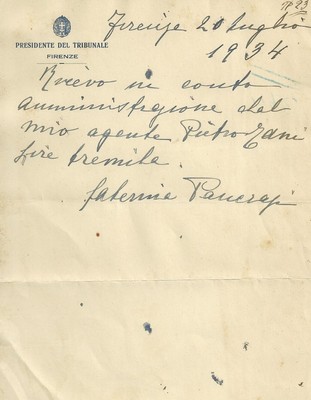 N° 23
PRESIDENTE DEL TRIBUNALE
FIRENZE
Firenze 20 luglio
1934
Ricevo in conto
amministrazione dal
mio agente Pietro
Lire tremila.